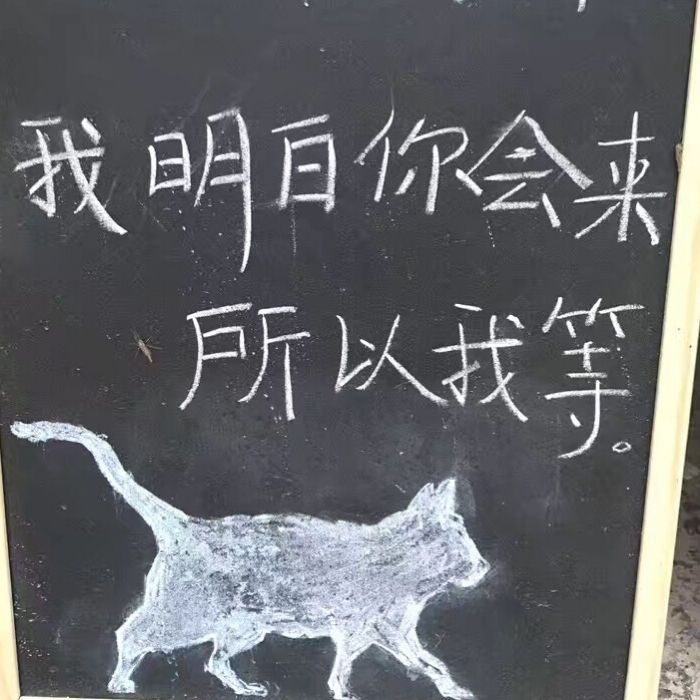 我明白你会来
所以我等。